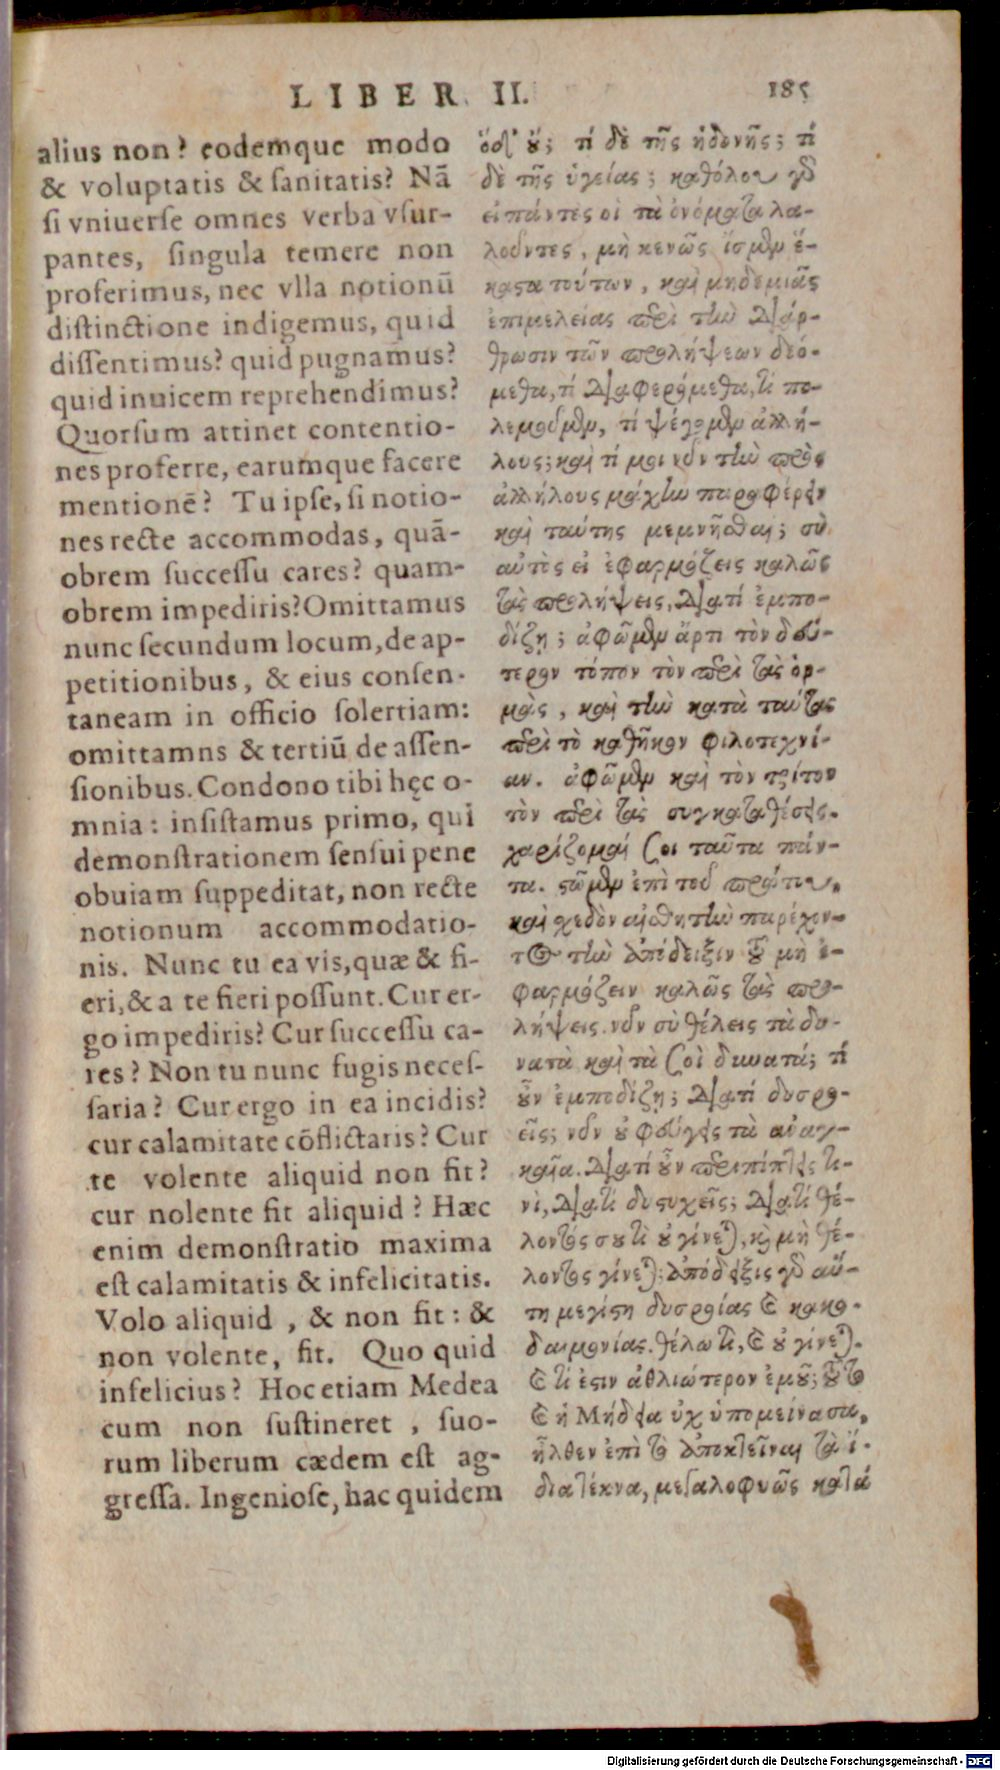 LIBER II. 185
alius non? eodemque modo
& voluptatis & sanitatis? Nā
si vniuerse omnes verba vsur-
pantes, singula temere non
proferimus, nec vlla notionū
distinctione indigemus, quid
dissentimus? quid pugnamus?
quid inuicem reprehendimus?
Quorsum attinet contentio-
nes proferre, earumque facere
mentionē? Tu ipse, si notio-
nes recte accommodas, quā-
obrem successu cares? quam-
obrem impediris? Omittamus
nunc secundum locum, de ap-
petitionibus, & eius consen-
taneam in officio solertiam:
omittamns & tertiū de assen-
sionibus. Condono tibi hęc o-
mnia: insistamus primo, qui
demonstrationem sensui pene
obuiam suppeditat, non recte
notionum accommodatio-
nis. Nunc tu ea vis, quæ & fi-
eri, & a te fieri possunt. Cur er-
go impediris? Cur successu ca-
res? Non tu nunc fugis neces-
saria? Cur ergo in ea incidis?
cur calamitate cōflictaris? Cur
te volente aliquid non fit?
cur nolente fit aliquid? Hæc
enim demonstratio maxima
est calamitatis & infelicitatis.
Volo aliquid, & non fit: &
non volente, fit. Quo quid
infelicius? Hoc etiam Medea
cum non sustineret, suo-
rum liberum cædem est ag-
gressa. Ingeniose, hac quidem
ὁδ' οὔ; τί δὲ τῆς ἡδονῆς; τί
δὲ τῆς ὑγείας; καθόλου γὸ
εἰ πάντες οἱ τὰ ὀνόματα λα-
λοῦντες, μὴ κενῶς ἴσμεν ἕ-
καστα τούτων, καὶ μηδεμιᾶς
ἐπιμελείας περὶ τὴν διάρ-
θρωσιν τῶν προλήψεων δεό-
μεθα, τί διαφερόμεθα, τί πο-
λεμοῦμεν, τί ψέγομεν ἀλλή-
λους; καὶ τί μοι νῦν τὴν πρὸς
ἀλλήλους μάχην παραφέρειν
καὶ ταύτης μεμνῆσθαι; σὺ
αὐτὸς εἰ ἐφαρμόζεις καλῶς
τὰς προλήψεις, διατί ἐμπο-
δίζῃ; ἀφῶμεν ἄρτι τὸν δεύ-
τερον τόπον τὸν περὶ τὰς ὁρ-
μὰς, καὶ τὴν κατὰ ταύτας
περὶ τὸ καθῆκον φιλοτεχνί-
αν. ἀφῶμεν καὶ τὸν τρίτον
τὸν περὶ τὰς συγκαταθέσεις.
χαρίζομαί σοι ταῦτα πάν-
τα. στῶμεν ἐπὶ τοῦ πρώτου,
καὶ σχεδὸν αἰσθητὴν παρέχον-
τος τὴν ἀπόδειξιν τοῦ μὴ ἐ-
φαρμόζειν καλῶς τὰς προ-
λήψεις. νῦν σὺ θέλεις τὰ δυ-
νατὰ καὶ τὰ σοὶ δυνατά; τί
οὖν ἐμποδίζῃ; διατί δυσρο-
εῖς; νῦν οὐ φεύγεις τὰ ἀναγ-
καῖα. διατί οὖν περιπίπτεις τι-
νὶ, διατί δυστυχεῖς; διατί θέ-
λοντός σου τὶ οὐ γίνεται, καὶ μὴ θέ-
λοντος γίνεται; ἀπόδειξις γὸ αὕ-
τη μεγίστη δυσροίας καὶ κακο-
δαιμονίας. θέλω τὶ, καὶ οὐ γίνεται.
καὶ τί ἐστιν ἀθλιώτερον ἐμοῦ; τοῦτο
καὶ ἡ Μήδεια οὐχ ὑπομείνασα,
ἦλθεν ἐπὶ τὸ ἀποκτεῖναι τὰ ἴ-
δια τέκνα, μεγαλοφυῶς κατά
Digitalisierung gefördert durch die Deutsche Forschungsgemeinschaft - DFG